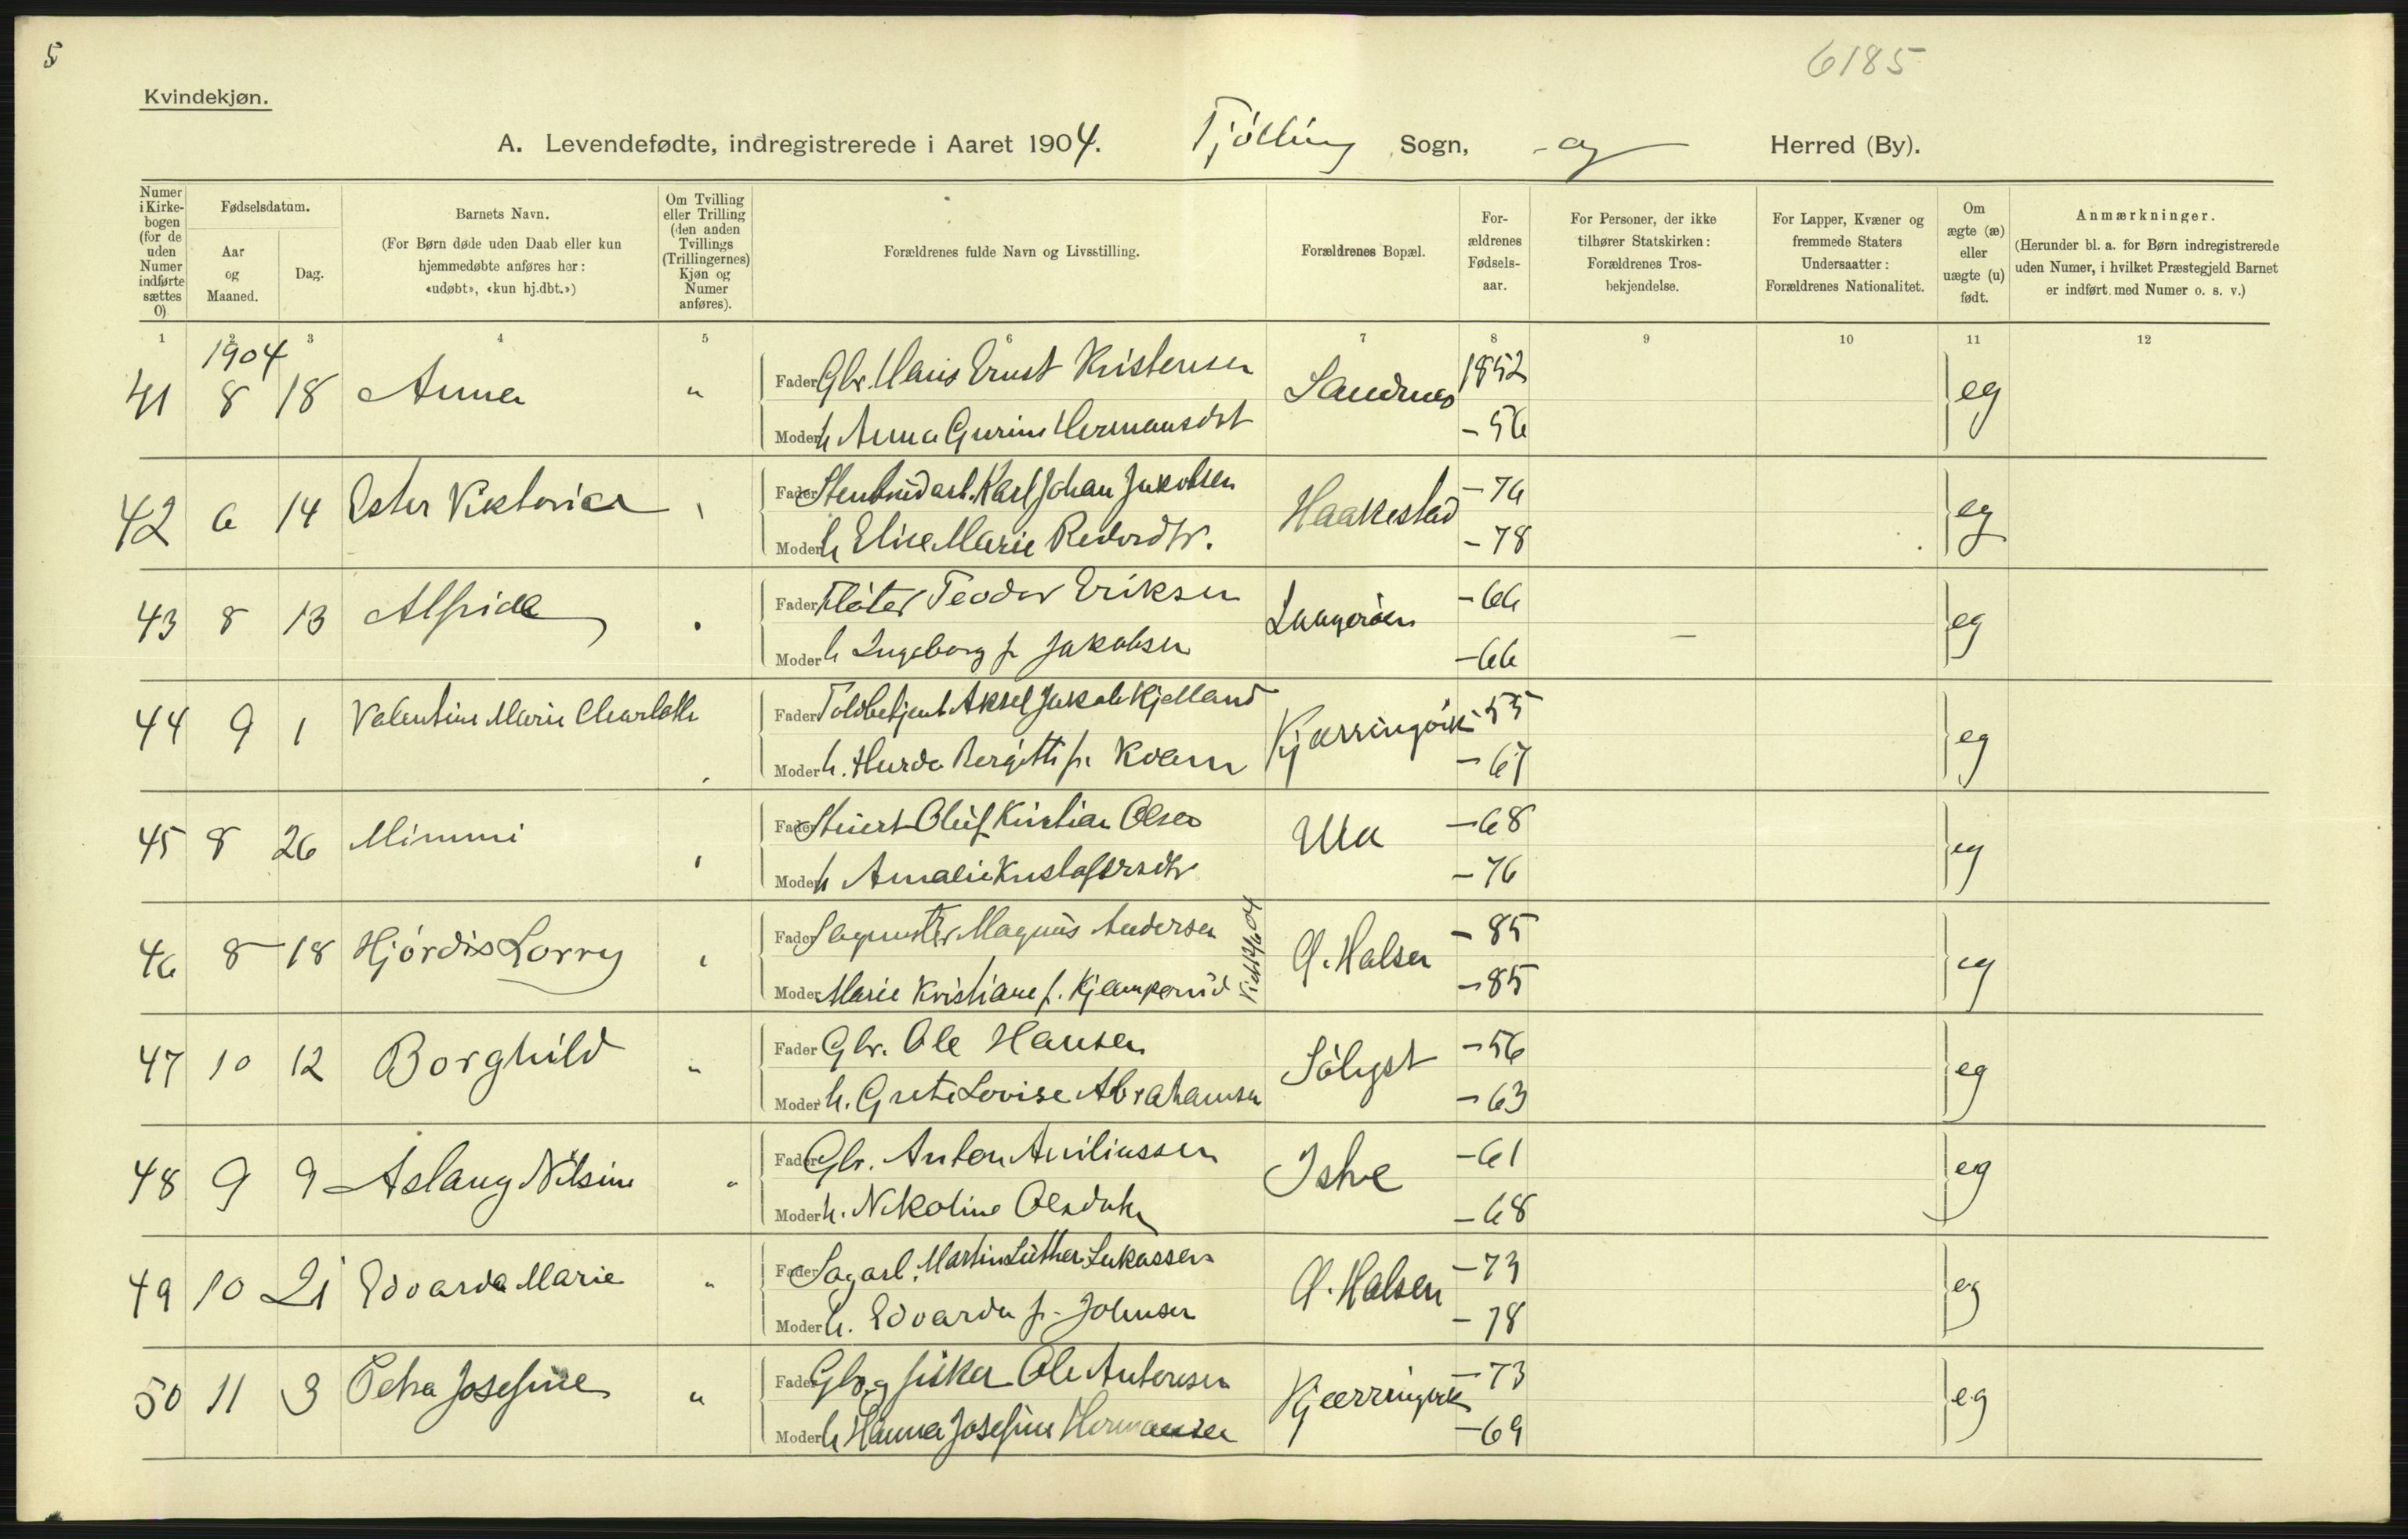 5
6185
Kvindekjøn.
A. Levendefødte, indregistrerede i Aaret 1904. Tjølling Sogn, - og Herred (By).
Numer i Kirkebogen (for de uden Numer indførte sættes 0).
Fødselsdatum.
Aar og Maaned.
Dag.
Barnets Navn.
(For Børn døde uden Daab eller kun hjemmedøbte anføres her: «udøbt», «kun hj.dbt.»)
Om Tvilling eller Trilling (den anden Tvillings (Trillingernes) Kjøn og Numer anføres).
Forældrenes fulde Navn og Livsstilling.
Forældrenes Bopæl.
Forældrenes Fødselsaar.
For Personer, der ikke tilhører Statskirken: Forældrenes Trosbekjendelse.
For Lapper, Kvæner og fremmede Staters Undersaatter: Forældrenes Nationalitet.
Om ægte (æ) eller uægte (u) født.
Anmærkninger.
(Herunder bl. a. for Børn indregistrerede uden Numer, i hvilket Præstegjeld Barnet er indført med Numer o. s. v.)
1 2 3 4 5 6 7 8 9 10 11 12
1904
41 8 18 Anna " Fader Gbr. Hans Ernst Kristensen Sandnes 1852 eg
Moder h Anna Gurine Hermansdt - 56
42 6 14 Ester Viktoria Fader Stenhudarb. Karl Johan Jakobsen Haakestad - 76 eg
Moder h Elise Marie - 78
43 8 13 Alfrida Fader Fløter Teodor Eriksen - 66 eg
Moder h Ingeborg f. Jakobsen - 66
44 9 1 Valentine Marie Charlotte Fader Toldbetjent Aksel Jakob Kjelland Kjærringvik - 55 eg
Moder h. Bergitte f. Kvam - 67
45 8 26 Mimmi Fader Oluf Kristian Olsen Ula - 68 eg
Moder h Amalie - 76
46 8 18 Hjørdis Lorry Fader Sagmester Magnus Andersen Ø. Halsen - 85 eg
Moder Marie Kristiane f. Kjamperud - 85
47 10 12 Borghild " Fader Gbr. Ole Hansen Sølyst - 56 eg
Moder h. Grete Lovise Abrahamsen - 63
48 9 9 Aslaug Nilsine " Fader Gbr. Anton Istre - 61 eg
Moder h. Nikoline Olsdatter - 68
49 10 21 Edvarda Marie " Fader Sagarb. Martin Luther Lukassen Ø. Halsen - 73 eg
Moder h. Edvarda f. Johnsen - 78
50 11 3 Petra Josefine " Fader Gbr. og fisker Ole Antonsen Kjærringvik - 73 eg
Moder h Hanna Josefine Hermansen - 69